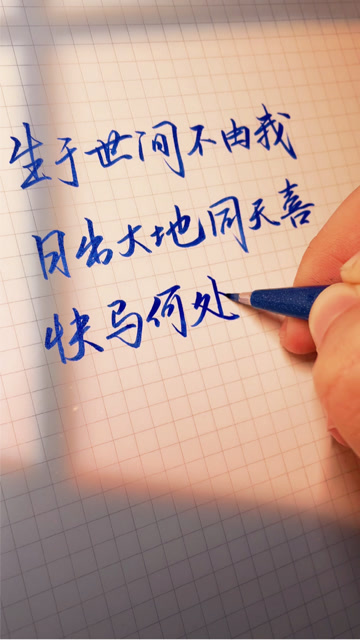 生于世间不由我
日出大地同天喜
快马何处